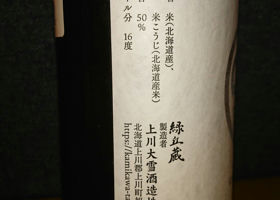 米(北海道産)、
米こうじ(北海道産米)
50%
16度
緑丘蔵
製造者
上川大雪酒造
北海道上川郡上川町
https://kamikawa-ta